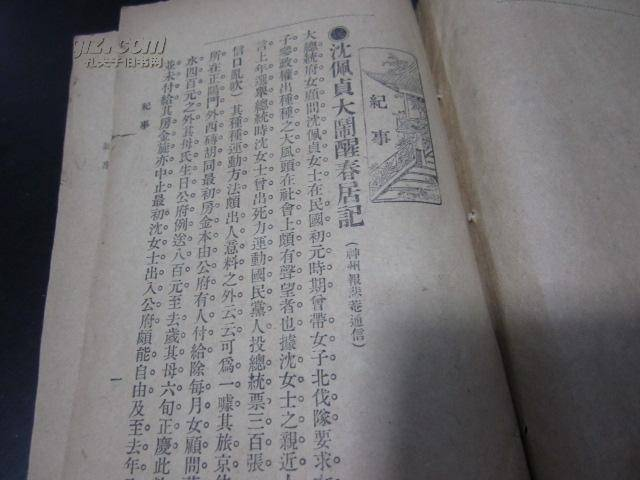 紀事
●沈佩貞大鬧醒春居記（神州報裴菴通信）
大總統府女顧問沈佩貞女士在民國初元時期曾帶女子北伐隊要求
子參政權出種種之大風頭在社會上頗有聲望者也據沈女士之親近
言上年選舉總統時沈女士曾出死力運動國民黨人投總統票三百張
信口亂吹一其種種運動方法頗出人意料之外云云可爲一噱其旅京
所在正陽門外西磚胡同最初房金本由公府有人付給除每月女顧問
水四百元之外其母氏生日公府例送八百元至去歲其母六旬正慶此
並未付給其房金施亦中止最初沈女士出入公府頗能自由及至去年
紀事
一
孔夫子旧书网